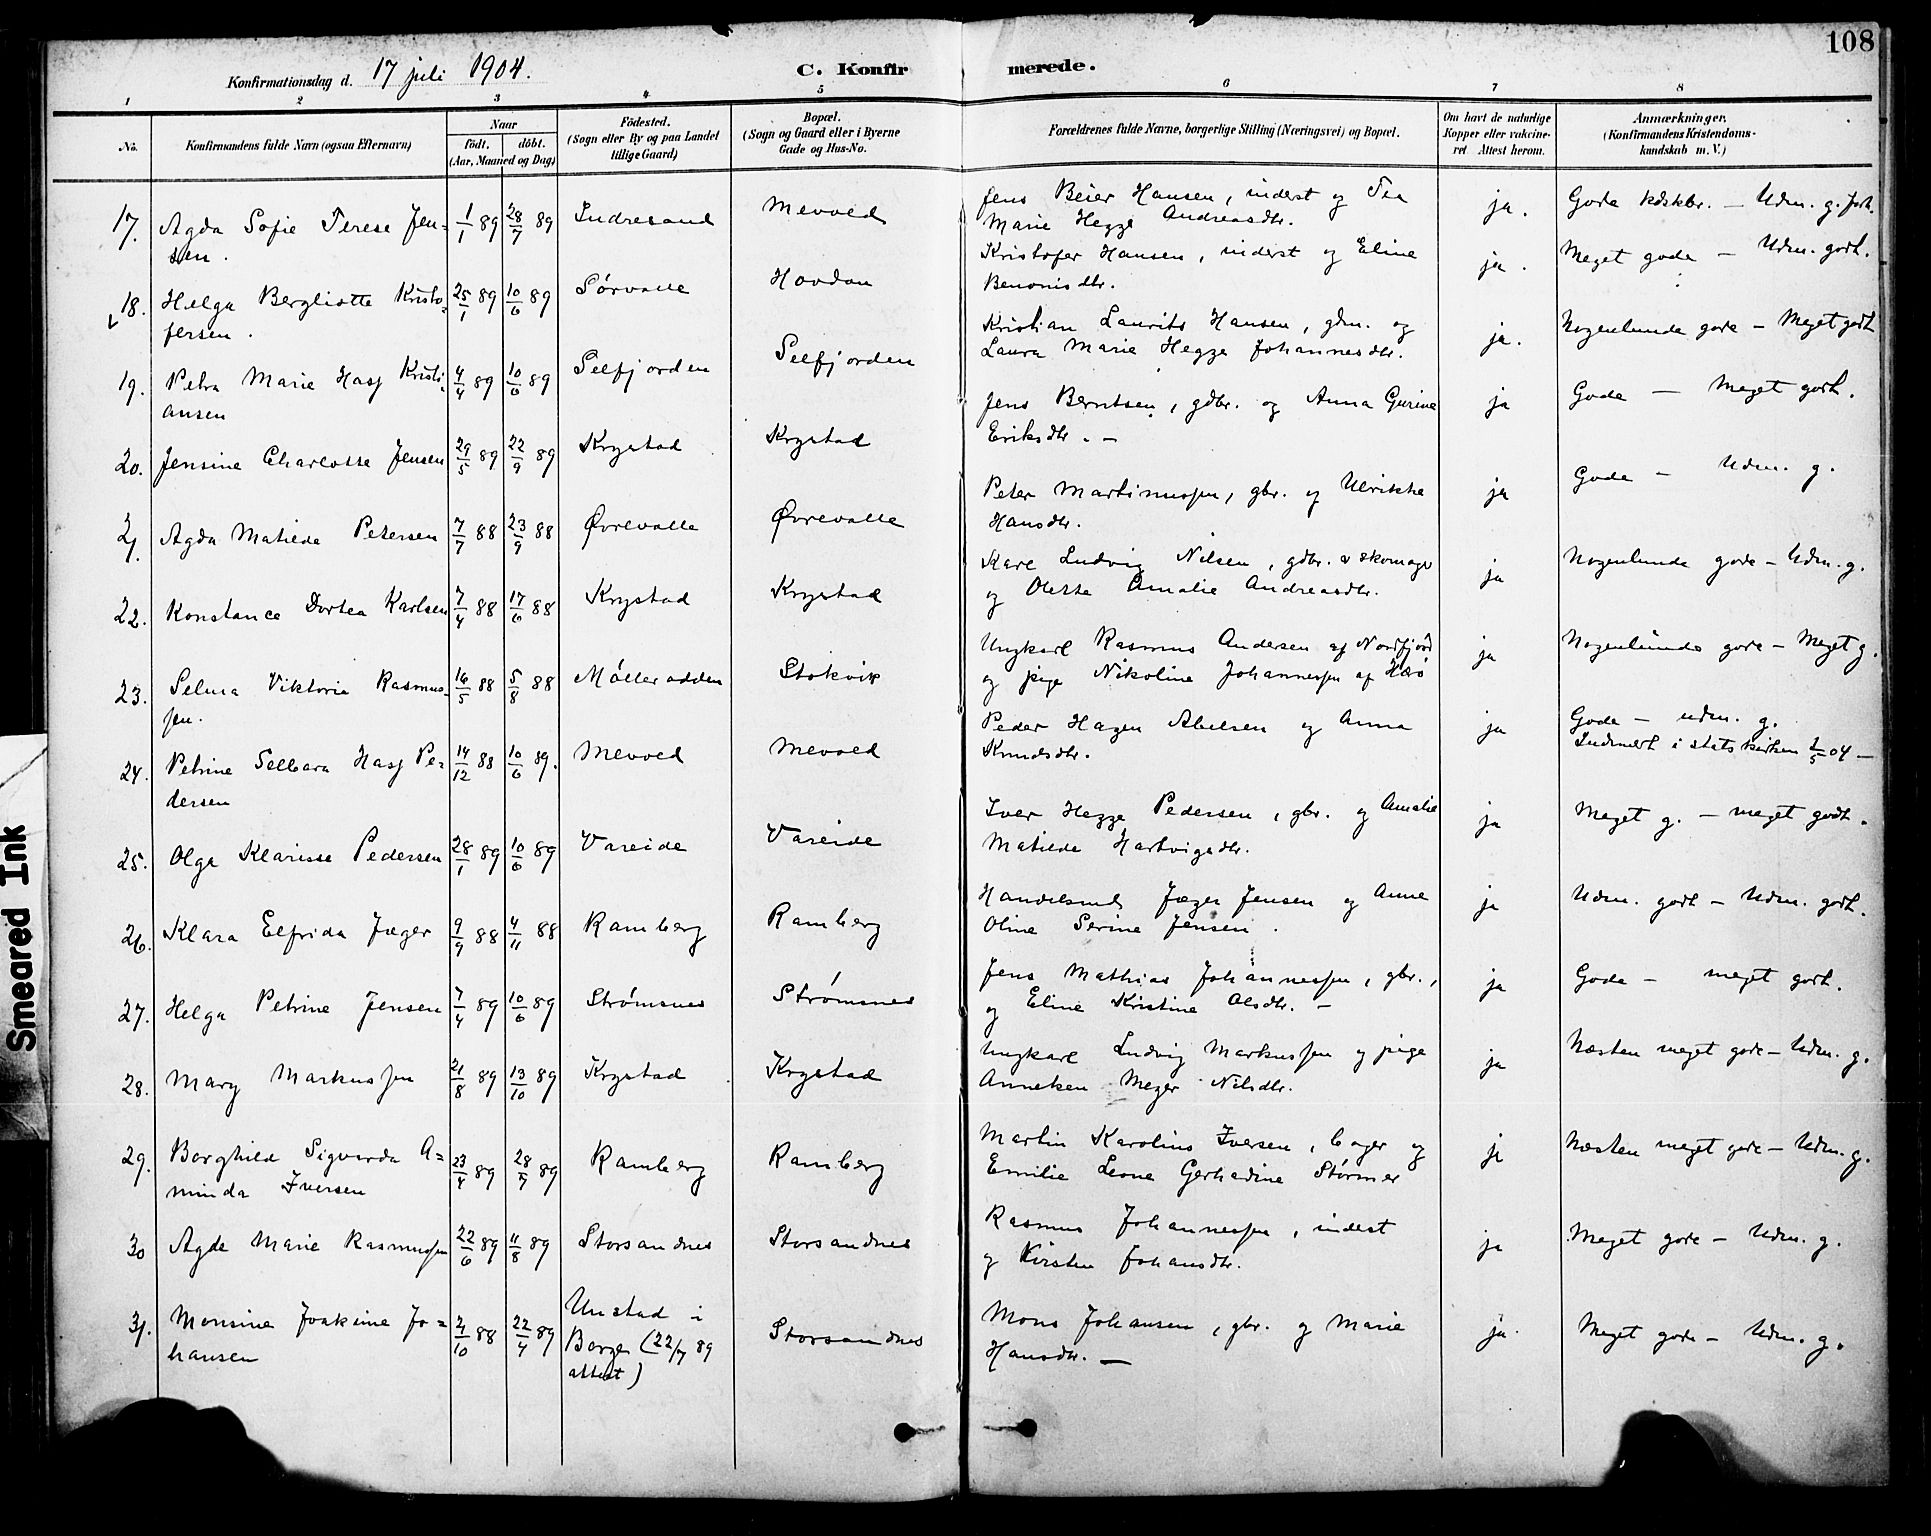 108
Konfirmationsdag d. 17 juli 1904. C. Konfirmerede.
1 2 3 4 5 6 7 8
No. Konfirmandens fulde Navn (ogsaa Efternavn) Naar födt. döbt. (Aar, Maaned og Dag) Födested. (Sogn eller By og paa Landet tillige Gaard) Bopæl. (Sogn og Gaard eller i Byerne Gade og Hus-No. Forældrenes fulde Navne, borgerlige Stilling (Næringsvei) og Bopæl. Om havt de naturlige Kopper eller vakcineret Attest herom. Anmærkninger. (Konfirmandens Kristendomskundskab m. V.)
17. Agda Sofie Terese Jen= 1/1 89 28/7 89 Indresand Mevold Jens Beier Hansen, inderst og Tea ja. Gode kdskbr. – Udm. g. forh.
sen. Marie Hegge Andreasdtr.
18. Helga Bergliotte Kristo= 25/1 89 10/6 89 Sørvalle Hovdan Kristofer Hansen, inderst og Eline ja. Meget gode – Udm. godt.
fersen. Benonisdtr.
19. Petra Marie Hasj Kristi= 4/4 89 10/6 89 Selfjorden Selfjorden Kristian Laurits Hansen, gdm. og ja. Nogenlunde gode – Meget godt
ansen Laura Marie Hegge Johannesdtr.
20. Jensine Charlotte Jensen 29/5 89 22/9 89 Krystad Krystad Jens Berntsen, gdbr. og Anna Gurine ja Gode – Meget godt.
Eriksdtr. –
21. Agda Matilda Petersen 7/7 88 23/9 88 Øvrevalle Øvrevalle Peter Martinussen, gbr. og Ulrikke ja Gode – Udm. g.
Hansdtr.
22. Konstance Dortea Karlsen 7/4 88 17/6 88 Krystad Krystad Karl Ludvig Nilsen, gdbr. & skomager ja Nogenlunde gode – Udm. g.
og Oletta Amalie Andreasdtr.
23. Selma Viktoria Rasmus- 16/5 88 5/8 88 Mølleradden Stokvik Ungkarl Rasmus Andersen af Nordfjord ja Nogenlunde gode – Meget g.
sen. og pige Nikoline Johannessen af Herø
24. Petrine Selbara Hasj Pe- 14/12 88 10/6 89. Mevold Mevold Peder Hagen Abelsen og Anna ja Gode – udm. g.
dersen Knudsdtr. Indmeldt i statskirken 2/5 04 –
25. Olga Klarisse Pedersen 28/1 89 10/6 89 Vareide Vareide Iver Hegge Pedersen, gbr. og Amalie ja Meget g. – meget godt.
Matilde Hartvigsdtr.
26. Klara Elfrida Jæger 9/9 88 4/11 88 Ramberg Ramberg Handelsmd Jæger Jensen og Anne ja Udm. godt – Udm. godt.
Oline Serine Jensen.
27. Helga Petrine Jensen 7/4 89 10/6 89 Strømsnes Strømsnes Jens Mathias Johannessen, gbr., ja Gode – meget godt.
og Eline Kristine Olsdtr. –
28. Mary Markussen 21/8 89 13/10 89 Krystad Krystad Ungkarl Ludvig Markussen og pige ja Næsten meget gode – Udm. g.
Anneken Meyer Nilsdtr.
29. Borghild Sigvarda A= 23/4 89 28/7 89 Ramberg Ramberg Martin Karolius Iversen, bager og ja Næsten meget gode – Udm. g.
minda Iversen Emilie Leone Gerhadine Størmer
30 Agda Marie Rasmussen 22/6 89 11/8 89 Storsandnes Storsandnes Rasmus Johannessen, inderst ja Meget gode – Udm. g.
og Kirsten Johansdtr.
31. Monsine Joakime Jo= 2/10 88 22/4 89 Unstad i Storsandnes Mons Johansen, gbr. og Marie ja. Meget gode – Udm. g.
hansen Borge (22/7 89 Hansdtr. –
attest)
Smeared Ink